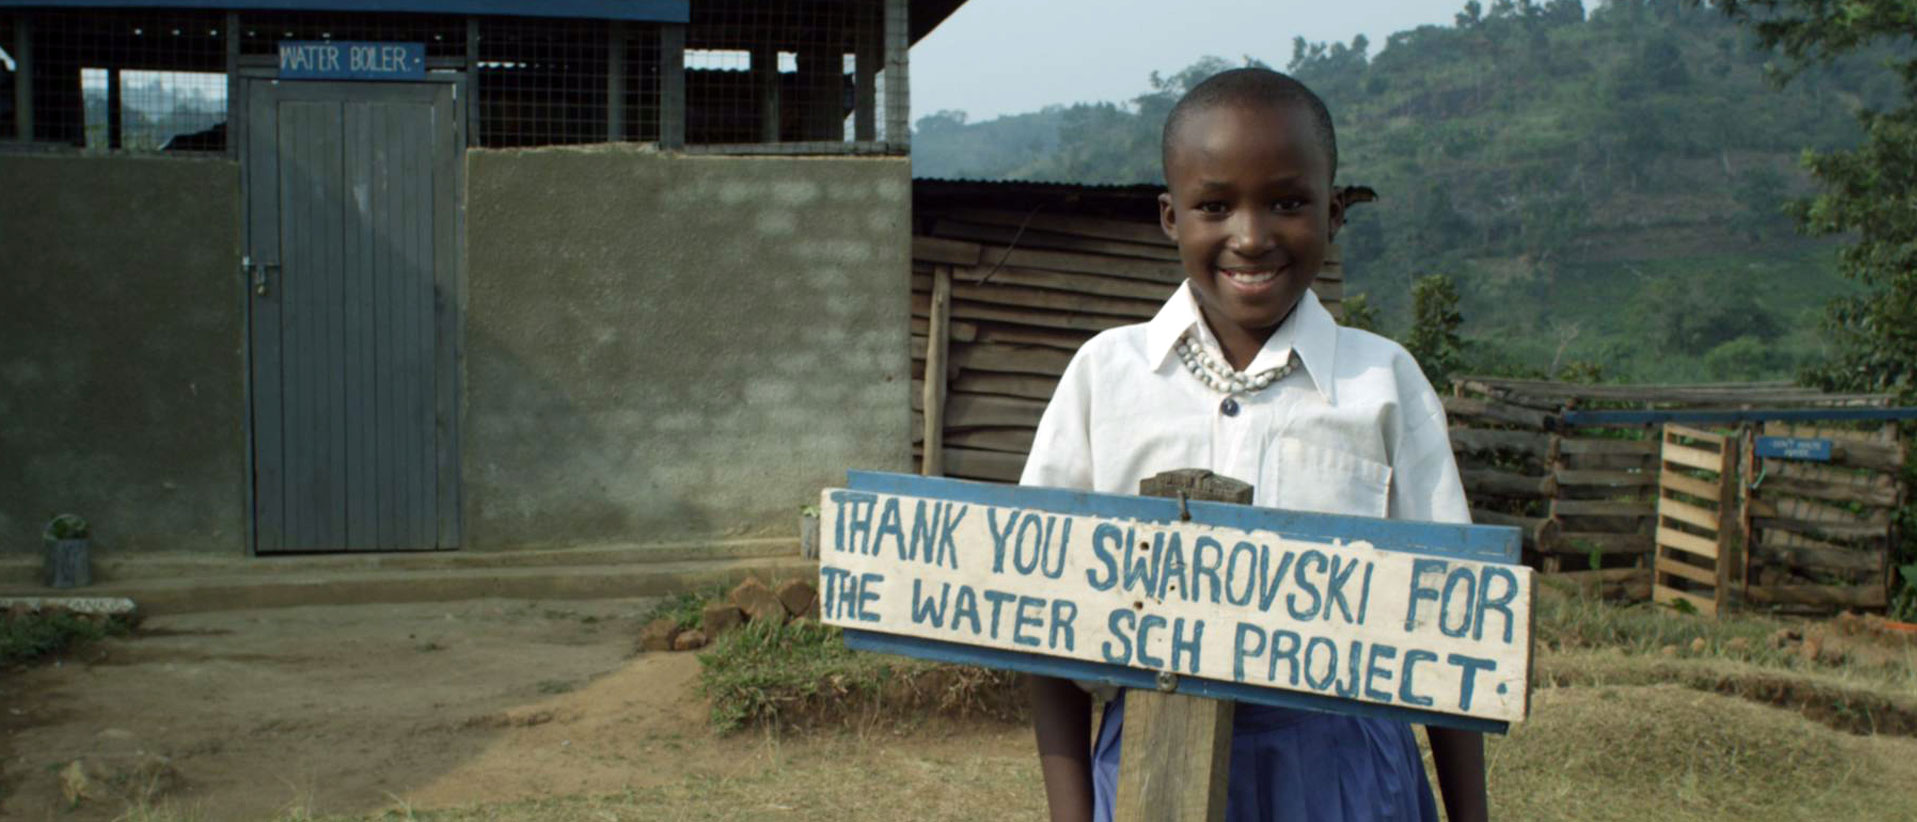 WATER BOILER.
THANK YOU SWAROVSKI FOR
THE WATER SCH PROJECT.